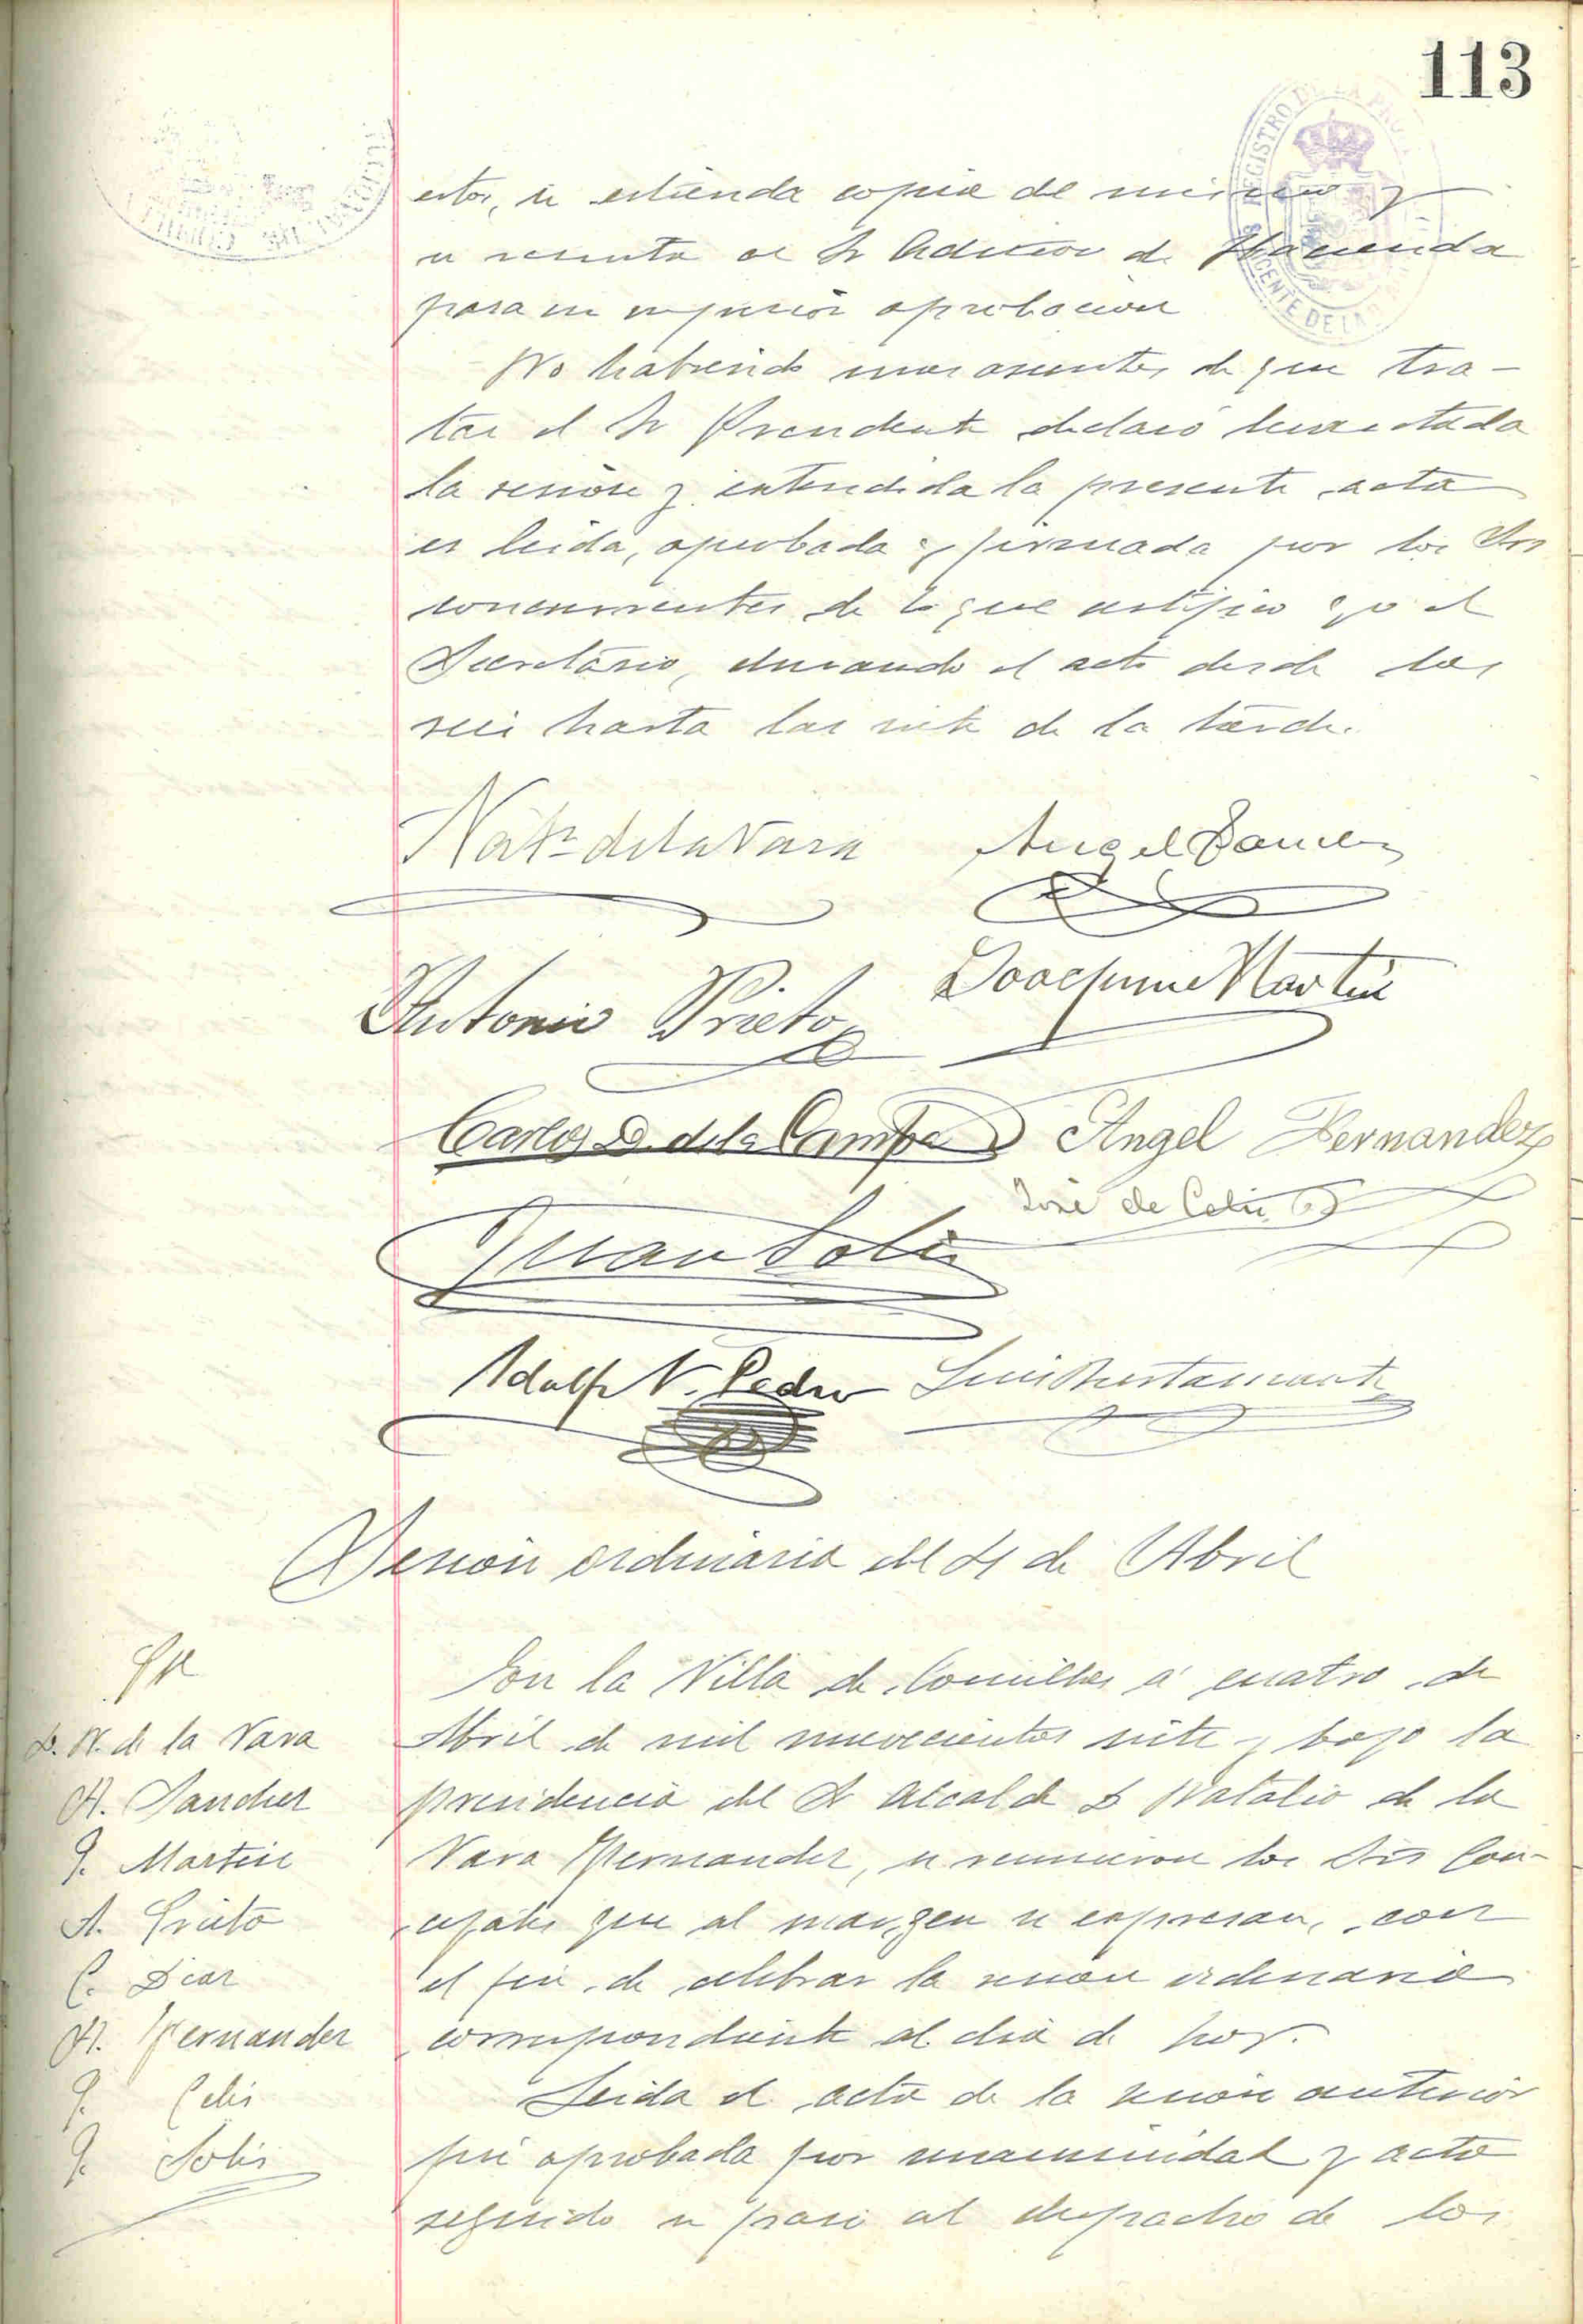 113
estos, se estienda copia del mismo y
se remita al Sr Admor de Hacienda
para su superior aprobacion
No habiendo mas asuntos de que tra-
tar el Sr Presidente declaró levantada
la sesión y extendida la presente acta
es leida, aprobada y firmada por los Srs
concurrentes de lo que certifico yo el
Secretario, durando el acto desde las
seis hasta las siete de la tarde.
Nat.º de la Vara Angel Sanchez
Antonio Prieto Joaquin Martin
Carlos D. de la Campa Angel Hernandez
José de Celis
Juan Solis
Adolfo V. Pedro Luis Bustamante
Sesión ordinaria del 4 de Abril
En la Villa de Comillas á cuatro de
Abril de mil novecientos siete y bajo la
presidencia del Sr Alcalde D Natalio de la
Vara Hernandez, se reunieron los Srs Con-
cejales que al margen se expresan, con
el fin de celebrar la sesion ordinaria
correspondiente al dia de hoy.
Leida el acta de la sesión anterior
fué aprobada por unanimidad y acto
seguido se pasó al despacho de los
D. N. de la Vara
A. Sanchez
J. Martin
A. Prieto
C. Diaz
A. Hernandez
J. Celis
J. Solis